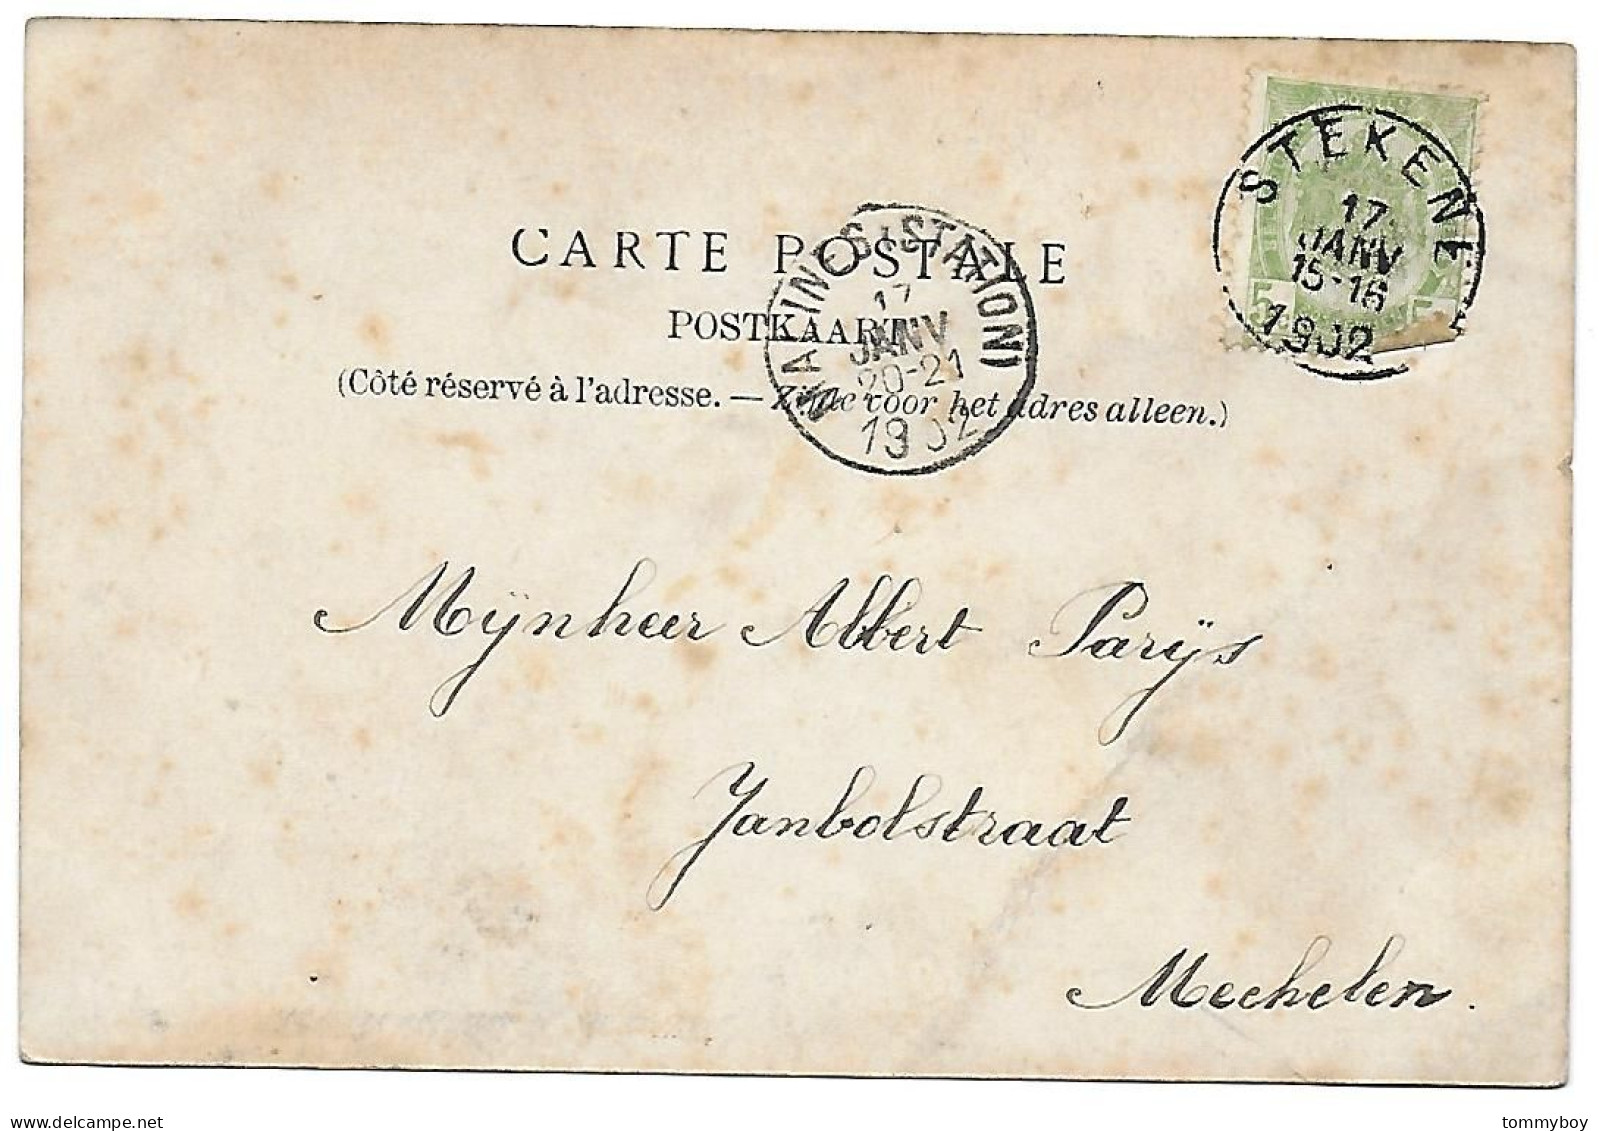 STEKENE
17
JANV
15-16
1902
5 5
CARTE POSTALE
POSTKAART
(Côté réservé à l'adresse. — Zijde voor het adres alleen.)
MALINES (STATION)
17
JANV
20-21
1902
Mÿnheer Albert Parÿs
Janbolstraat
Mechelen.
tommyboy